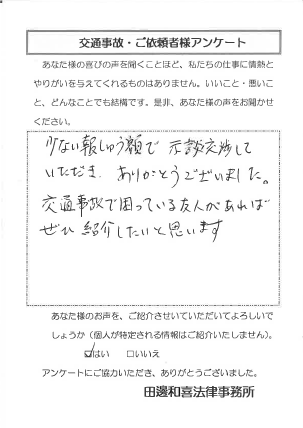 交通事故・ご依頼者様アンケート
あなた様の喜びの声を聞くことほど、私たちの仕事に情熱と
やりがいを与えてくれるものはありません。いいこと・悪いこ
と、どんなことでも結構です。是非、あなた様の声をお聞かせ
ください。
少ない報しゅう額で 示談交渉して
いただき、ありがとうございました。
交通事故で困っている友人があれば
ぜひ 紹介したいと思います
あなた様のお声を、ご紹介させていただいてよろしいで
しょうか（個人が特定される情報はご紹介いたしません）。
☑はい □いいえ
アンケートにご協力いただき、ありがとうございました。
田邊和喜法律事務所